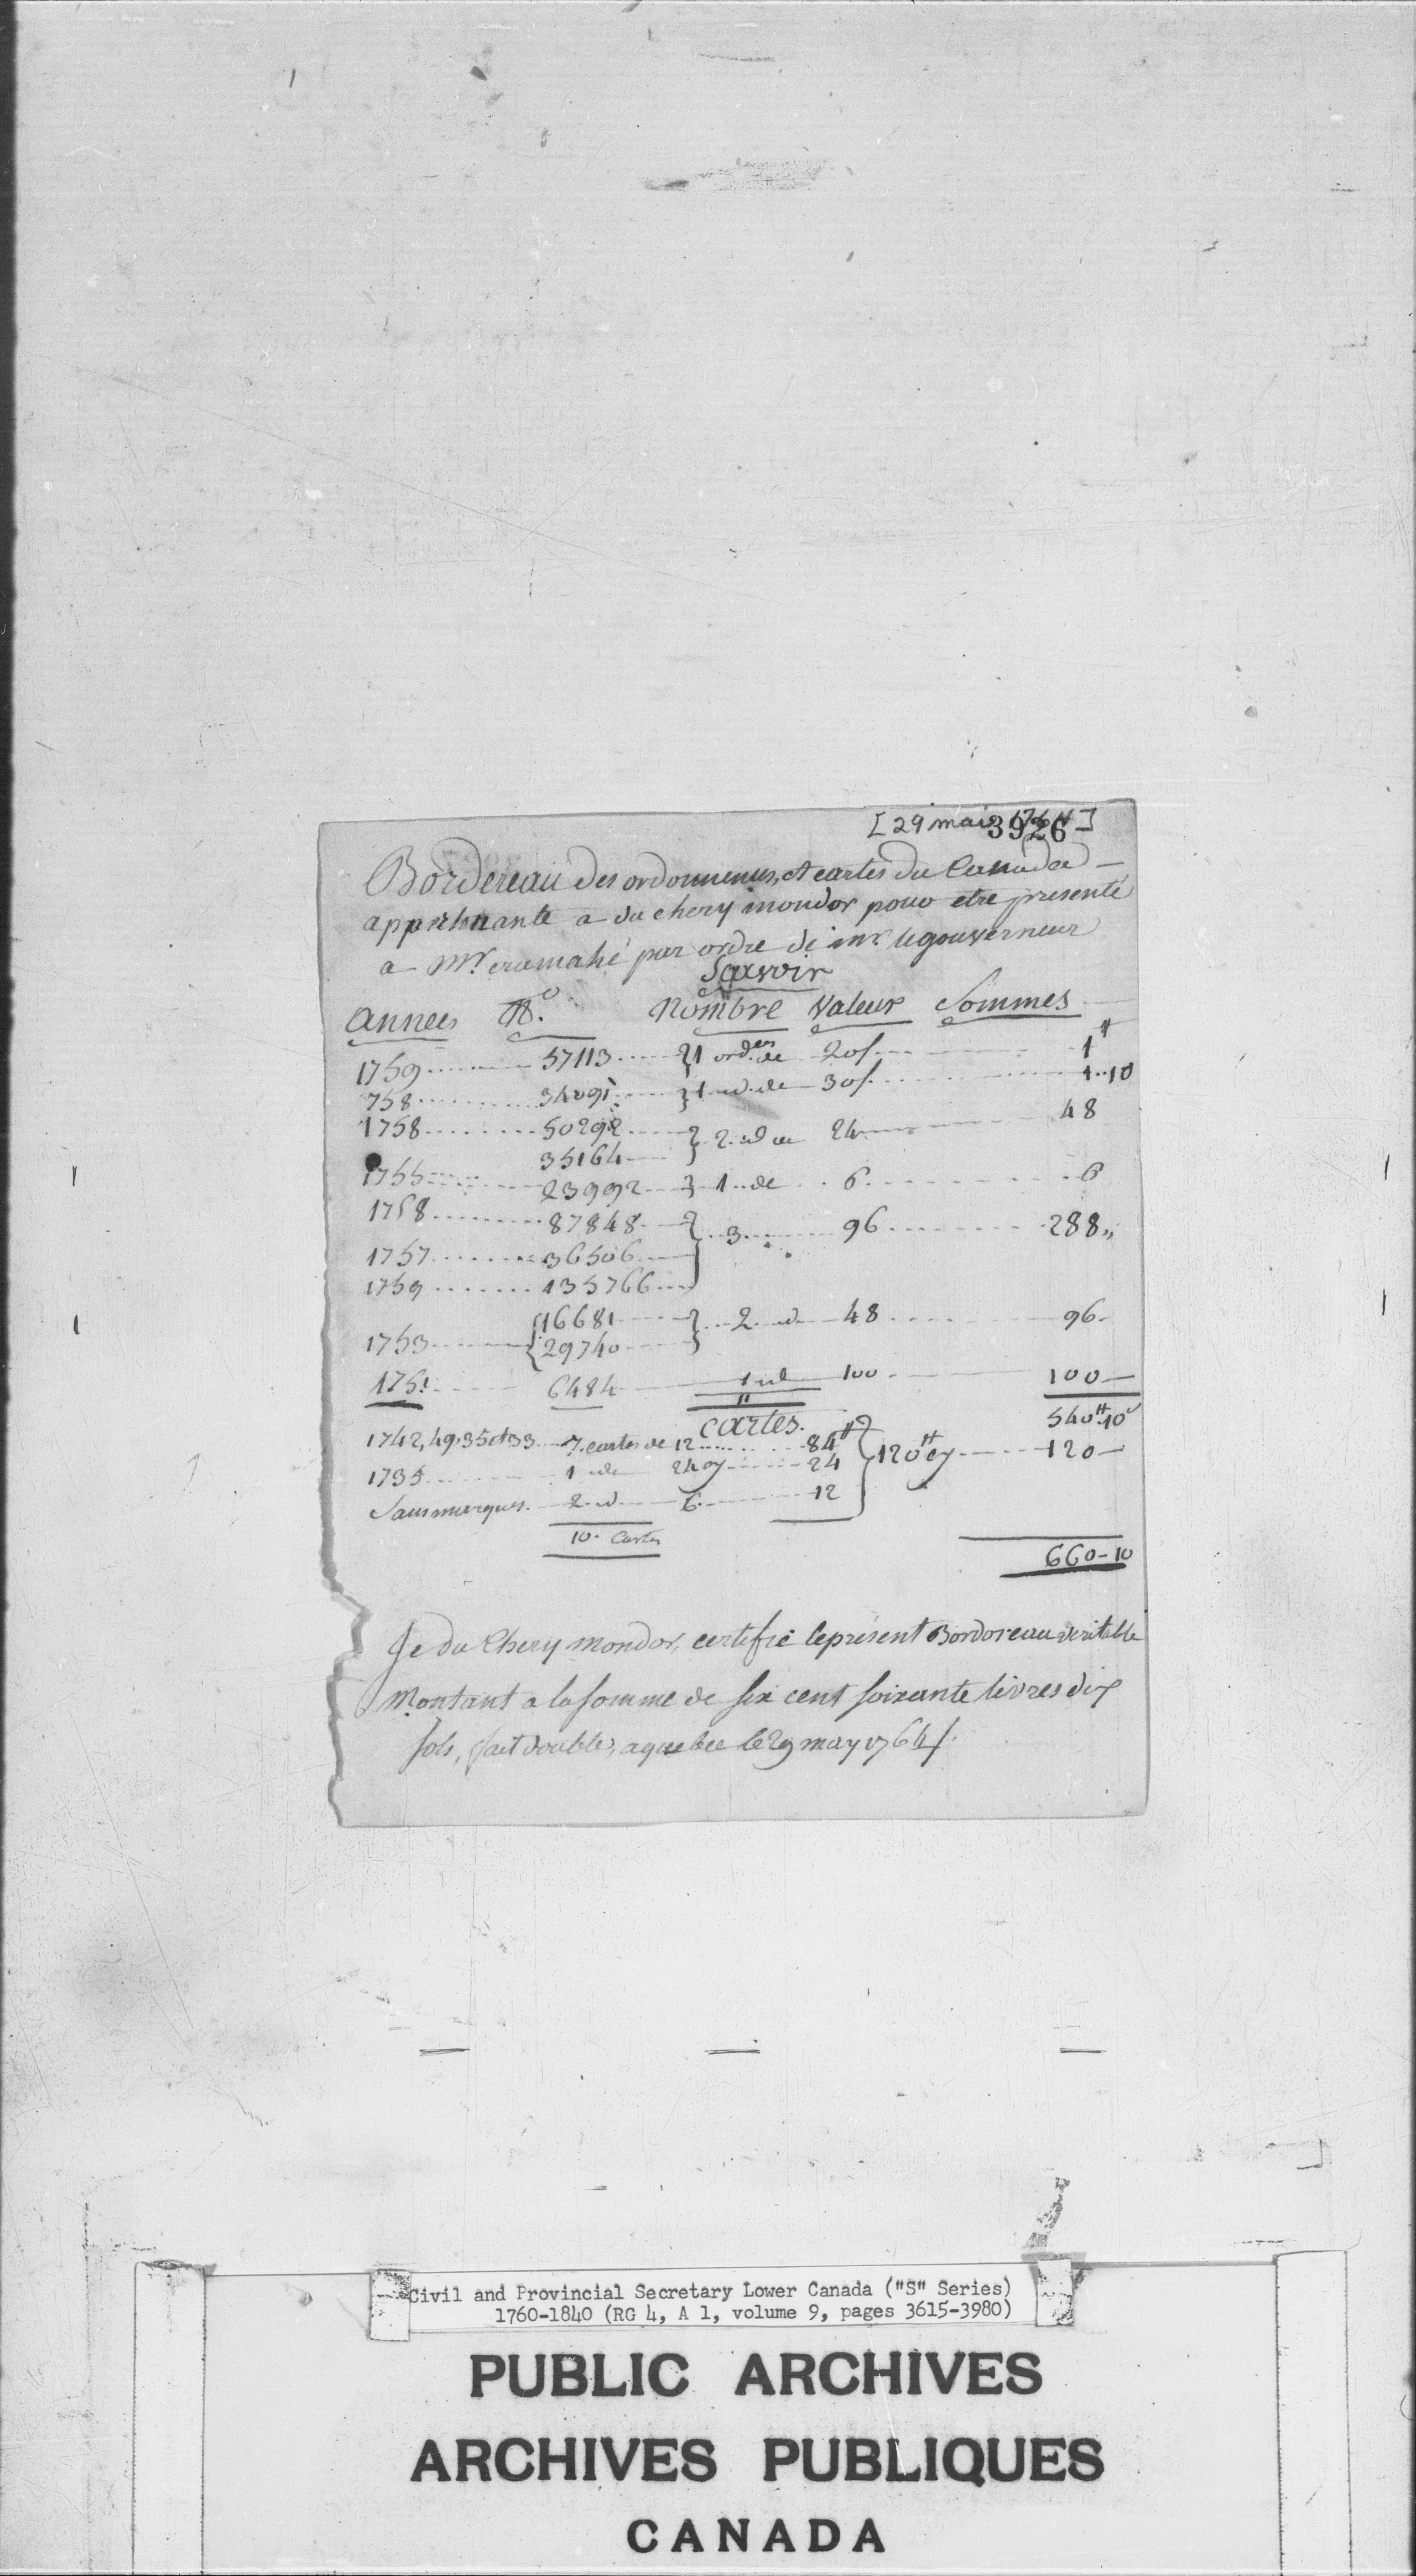 [29 mai 1764]
3926
Bordereau des ordonnences, et cartes du Canada
appartenante a du chery mondor pour etre presenté
a Mr. cramahé par ordre de mr. le gouverneur
Sçavoir
annees No. Nombre Valeur Sommes
1759 57113 1 ordce de 20s 1#
758 34091 1 id de 30s 1..10
1758 50292 2 id de 24 48
35164
1755 23992 1 de 6 6
1758 87848 3 96 288
1757 36506
1759 135766
16681 2 id 48 96
1753 29740
175 6484 1 id 100 100
cartes. 540#10s
1742, 49, 35 et 33 7 cartes de 12 84# 120# cy 120
1735 1 de 24 24
Sans marques 2 id 6 12
10 Cartes
660-10
Je du Chery mondor, certifie le présent Bordoreau veritable
Montant a la somme de six cent soixante livres dix
sols, fait double, a quebec le 29 may 1764
Civil and Provincial Secretary Lower Canada ("S" Series)
1760-1840 (RG 4, A 1, volume 9, pages 3615-3980)
PUBLIC ARCHIVES
ARCHIVES PUBLIQUES
CANADA